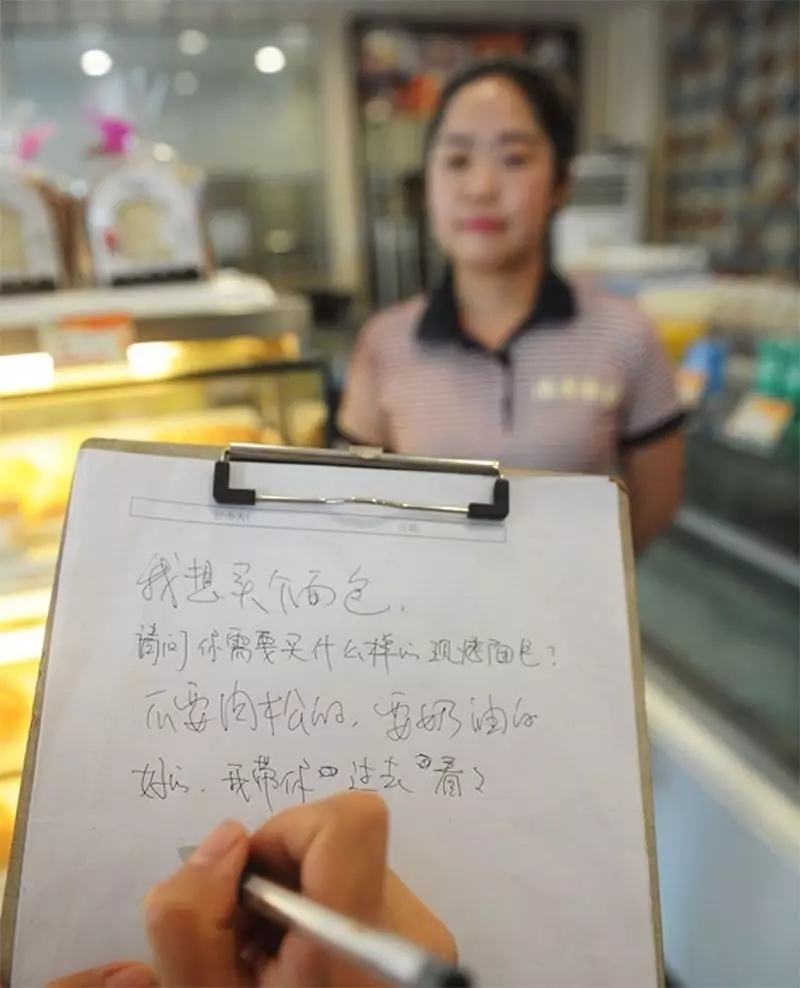 我想买个面包.
请问你需要买什么样的现烤面包?
不要肉松的,要奶油的
好的.我带你过去看